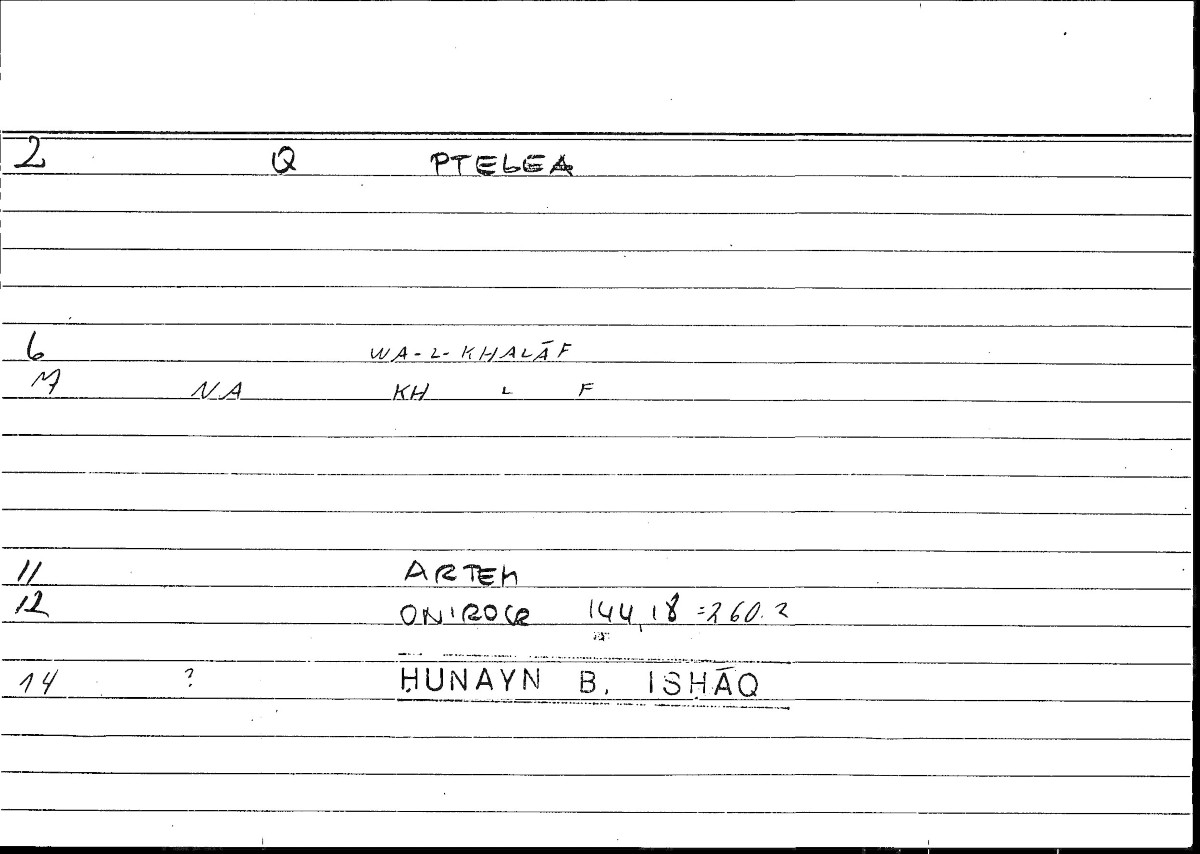 2 Q PTELEA
6 WA-L-KHALĀF
7 NA KH L F
11 ARTEM
12 ONIROCR 144,18 =260.2
14 ? ḤUNAYN B. ISḤĀQ